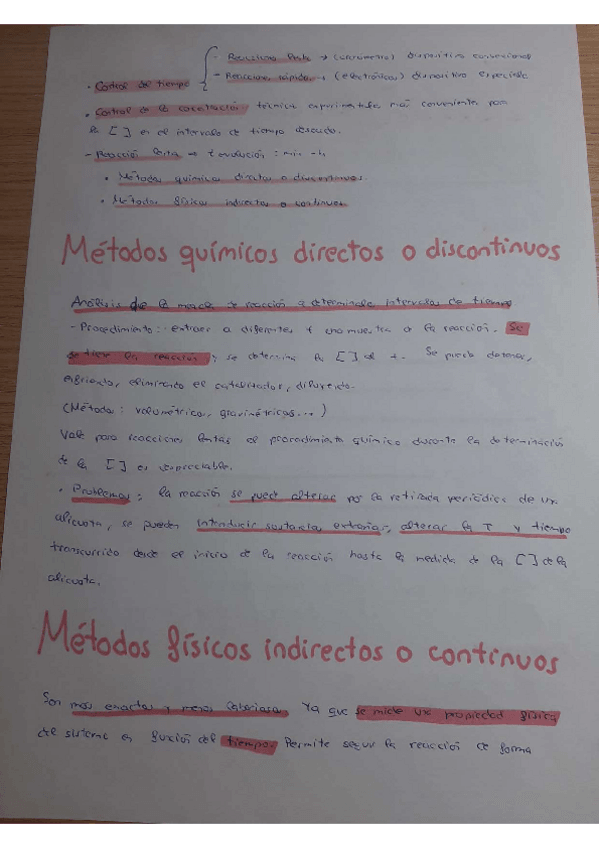 - Reacciones lenta → (cronómetro) dispositivo convencional
• Control del tiempo
- Reacciones rápidas → (electrónicos) dispositivo especiales
• Control de la concentración: técnica experimental más conveniente para
la [ ] en el intervalo de tiempo deseado.
- Reacción lenta → t evolución: min - h
• Métodos químicos directos o discontinuos
• Métodos físicos indirectos o continuos
Métodos químicos directos o discontinuos
Análisis de la mezcla de reacción a determinado intervalos de tiempo
- Procedimiento: extraer a diferentes t una muestra de la reacción. Se
la reacción, se determina la [ ] al t. Se puede detener,
enfriando, eliminando el catalizador, diluyendo.
(Métodos: volumétricos, gravimétricas...)
Vale para reacciones lentas el procedimiento químico durante la determinación
de la [ ] es
• Problemas: la reacción se puede alterar por la retirada periódica de una
alícuota, se pueden introducir sustancias extrañas, alterar la T y tiempo
transcurrido desde el inicio de la reacción hasta la medida de la [ ] de la
alícuota.
Métodos físicos indirectos o continuos
Son mas exactos y menos laboriosos. Ya que se mide una propiedad física
del sistema en función del tiempo. Permite seguir la reacción de forma